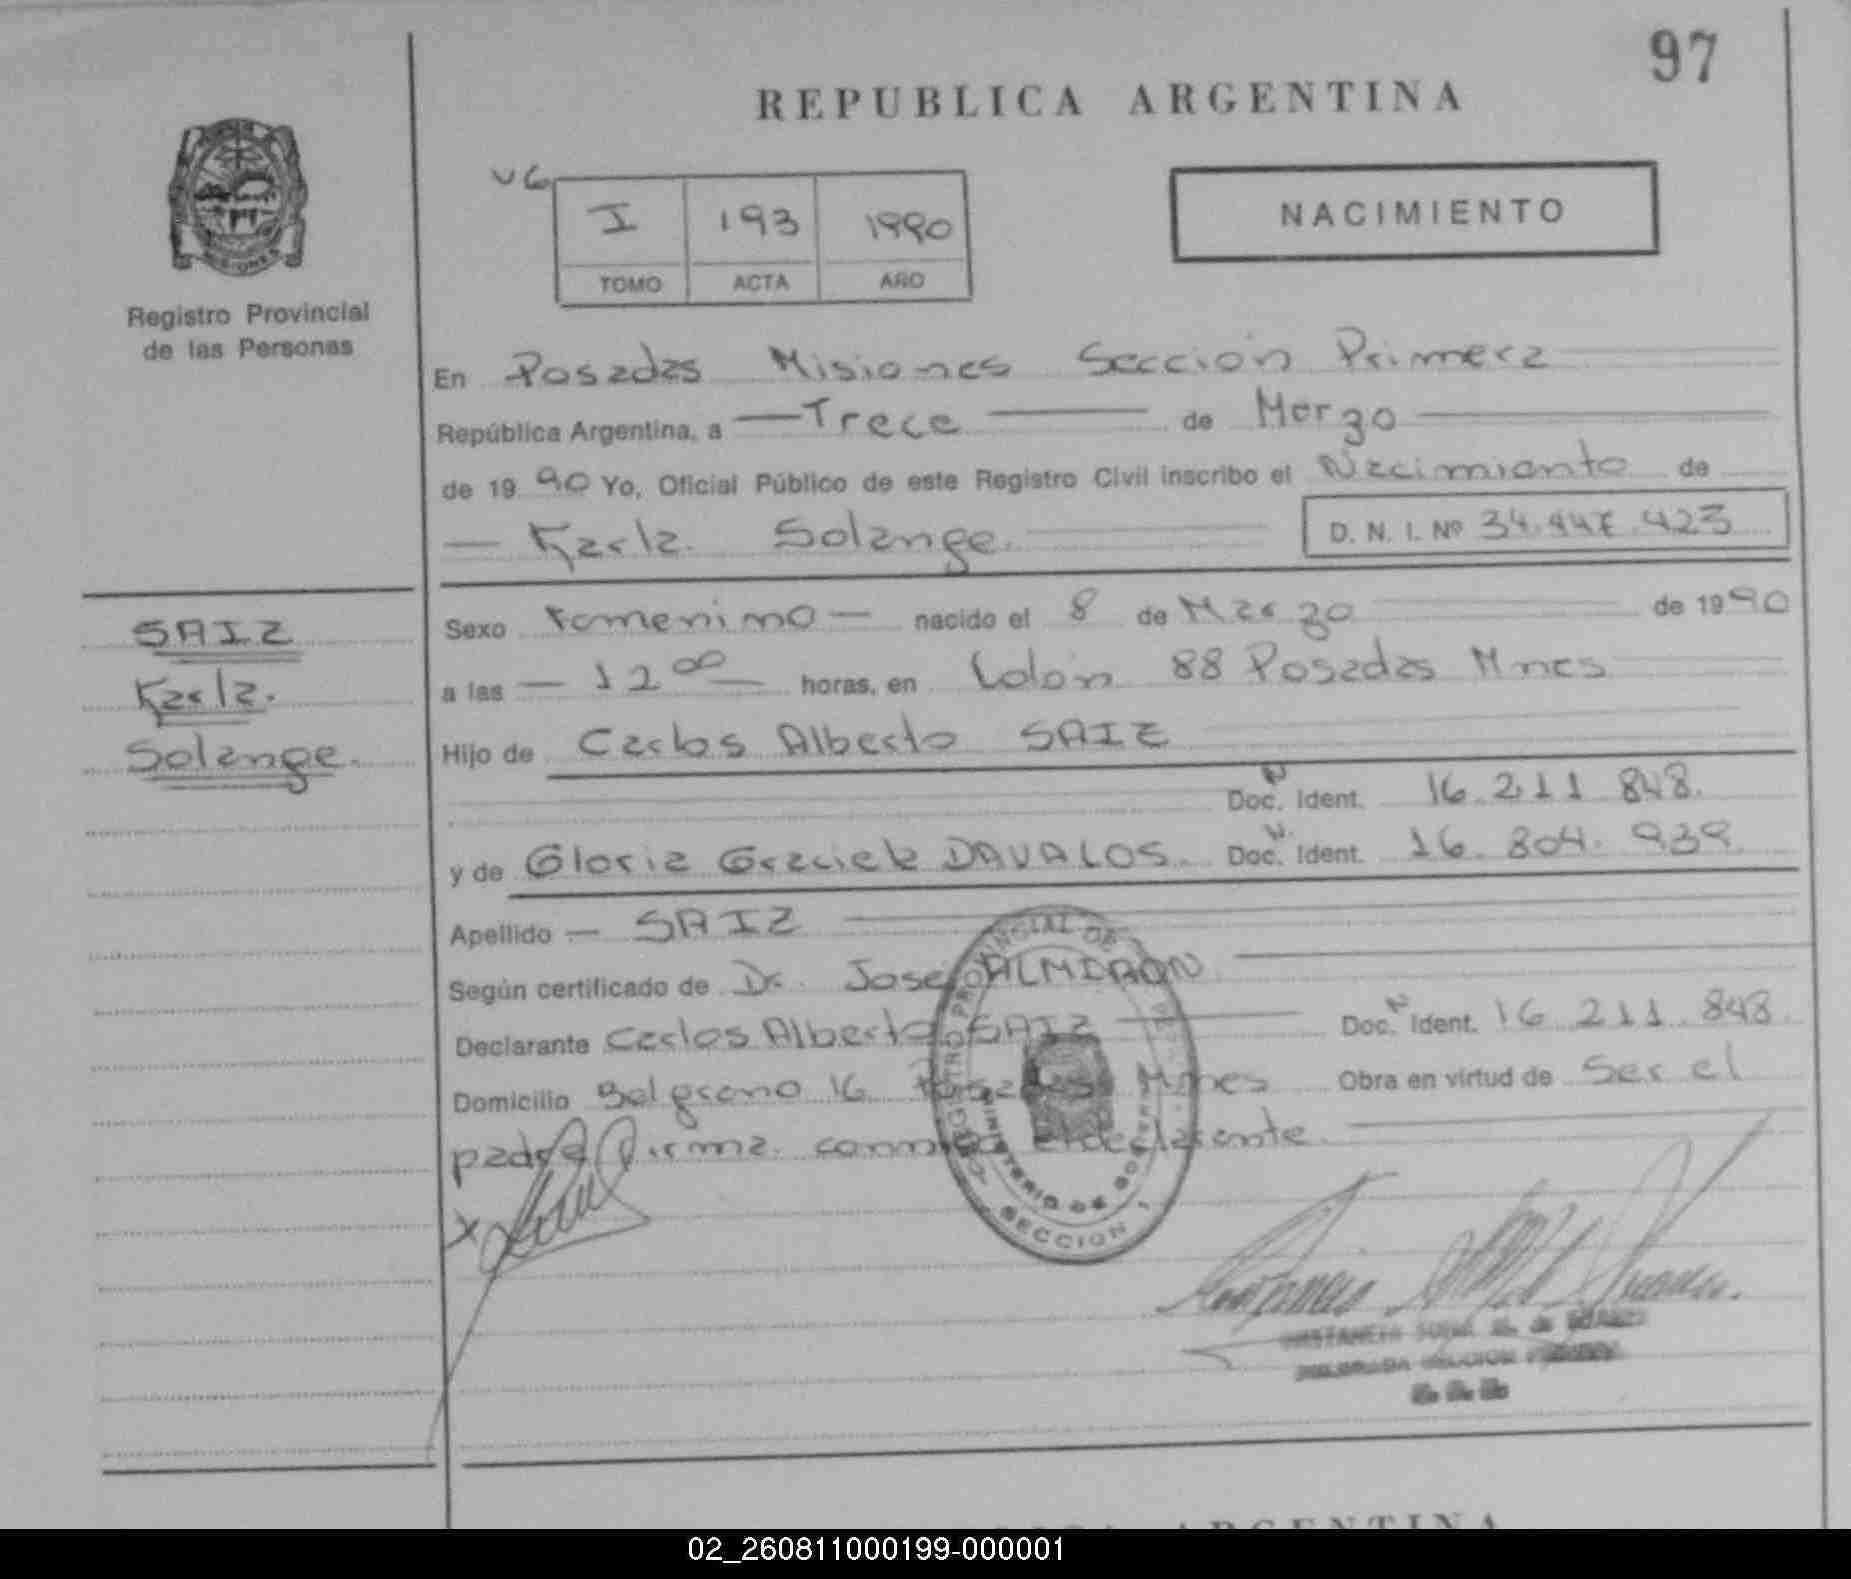 97
REPUBLICA ARGENTINA
MISIONES
Registro Provincial
de las Personas
V6
I 193 1990
TOMO ACTA AÑO
NACIMIENTO
En Posadas Misiones Sección Primera
República Argentina, a Trece de Marzo
de 19 90 Yo, Oficial Público de este Registro Civil inscribo el Nacimiento de
Karla Solange D. N. I. Nº
Sexo Femenino nacido el 8 de Marzo de 1990
a las 12 00 horas, en Colón 88 Posadas Mnes
Hijo de Carlos Alberto SAIZ
Doc. N Ident. 16.211.848
y de Gloria Graciela DAVALOS. Doc. N. Ident. 16.804.939
Apellido SAIZ
Según certificado de Dr. José ALMIRON
Declarante Carlos Alberto SAIZ Doc. N Ident. 16.211.848
Domicilio Belgrano 16 Posadas Mnes Obra en virtud de Ser el
padre firma conmigo el declarante
SAIZ
Karla
Solange
REGISTRO PROVINCIAL DE
MINISTERIO DE GOBIERNO
SECCION 1
ARGENTINA
02_260811000199-000001